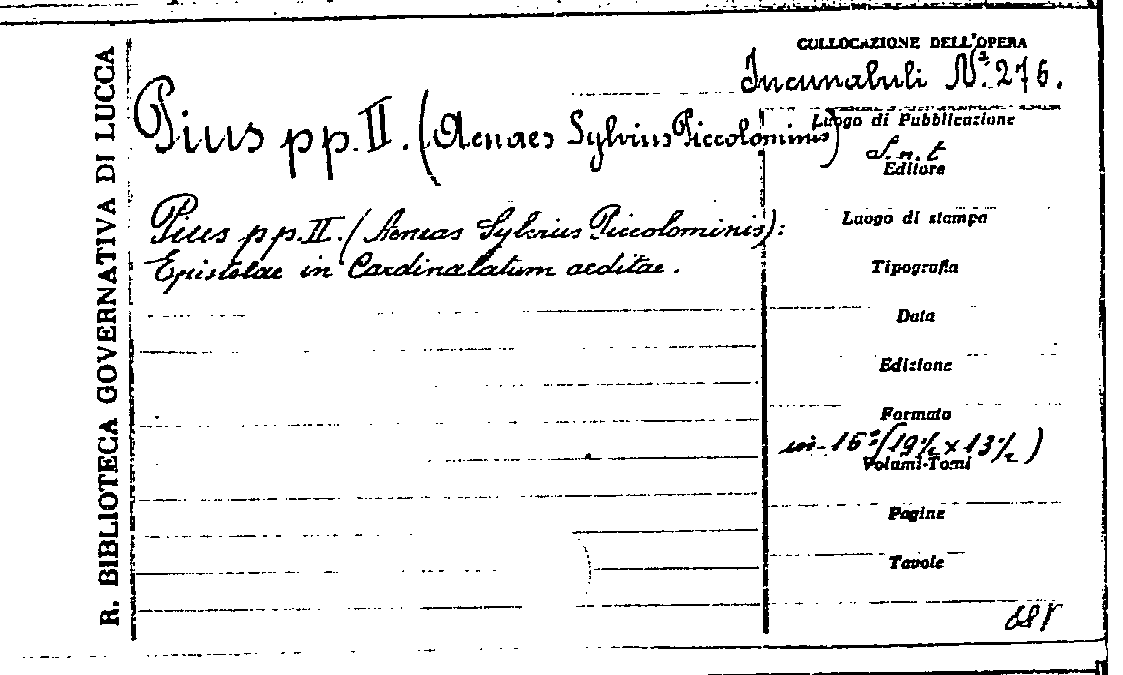 R. BIBLIOTECA GOVERNATIVA DI LUCCA
COLLOCAZIONE DELL'OPERA
Incunabuli N.º 276.
Pius pp. II. (Aenaes Sylvius Piccolominis)
Pius pp. II. (Aeneas Sylvius Piccolominis):
Epistolae in Cardinalatum aeditae.
Luogo di Pubblicazione
S. n. t
Editore
Luogo di stampa
Tipografia
Data
Edizione
Formato
in-16º (19½ x 13½)
Volumi-Tomi
Pagine
Tavole